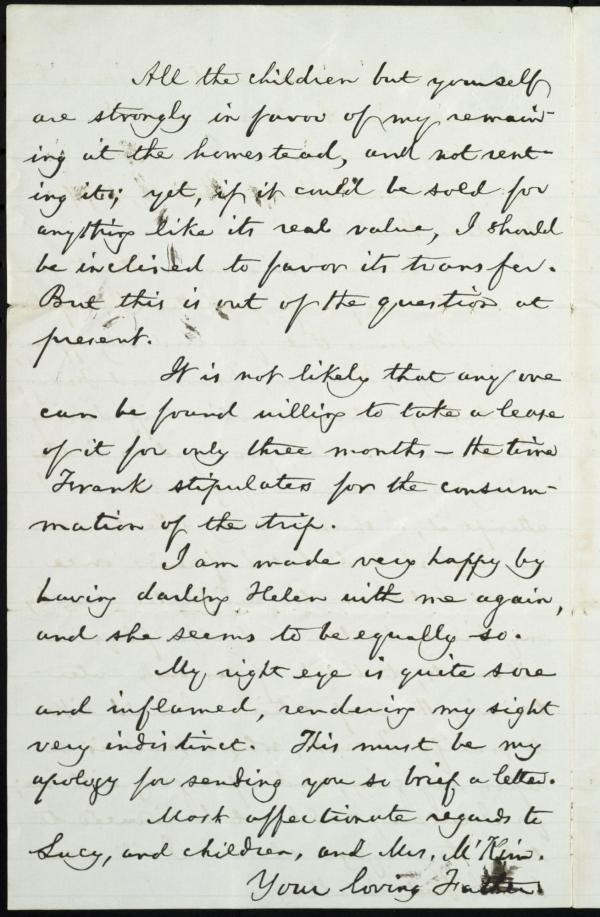 All the children but yourself
are strongly in favor of my remain-
ing at the homestead, and not rent-
ing it; yet, if it could be sold for
anything like its real value, I should
be inclined to favor its transfer.
But this is out of the question at
present.
It is not likely that any one
can be found willing to take a lease
of it for only three months — the time
Frank stipulates for the consum-
mation of the trip.
I am made very happy by
having darling Helen with me again,
and she seems to be equally so.
My right eye is quite sore
and inflamed, rendering my sight
very indistinct. This must be my
apology for sending you so brief a letter.
Most affectionate regards to
Lucy, and children, and Mrs. M'Kim.
Your loving Father.